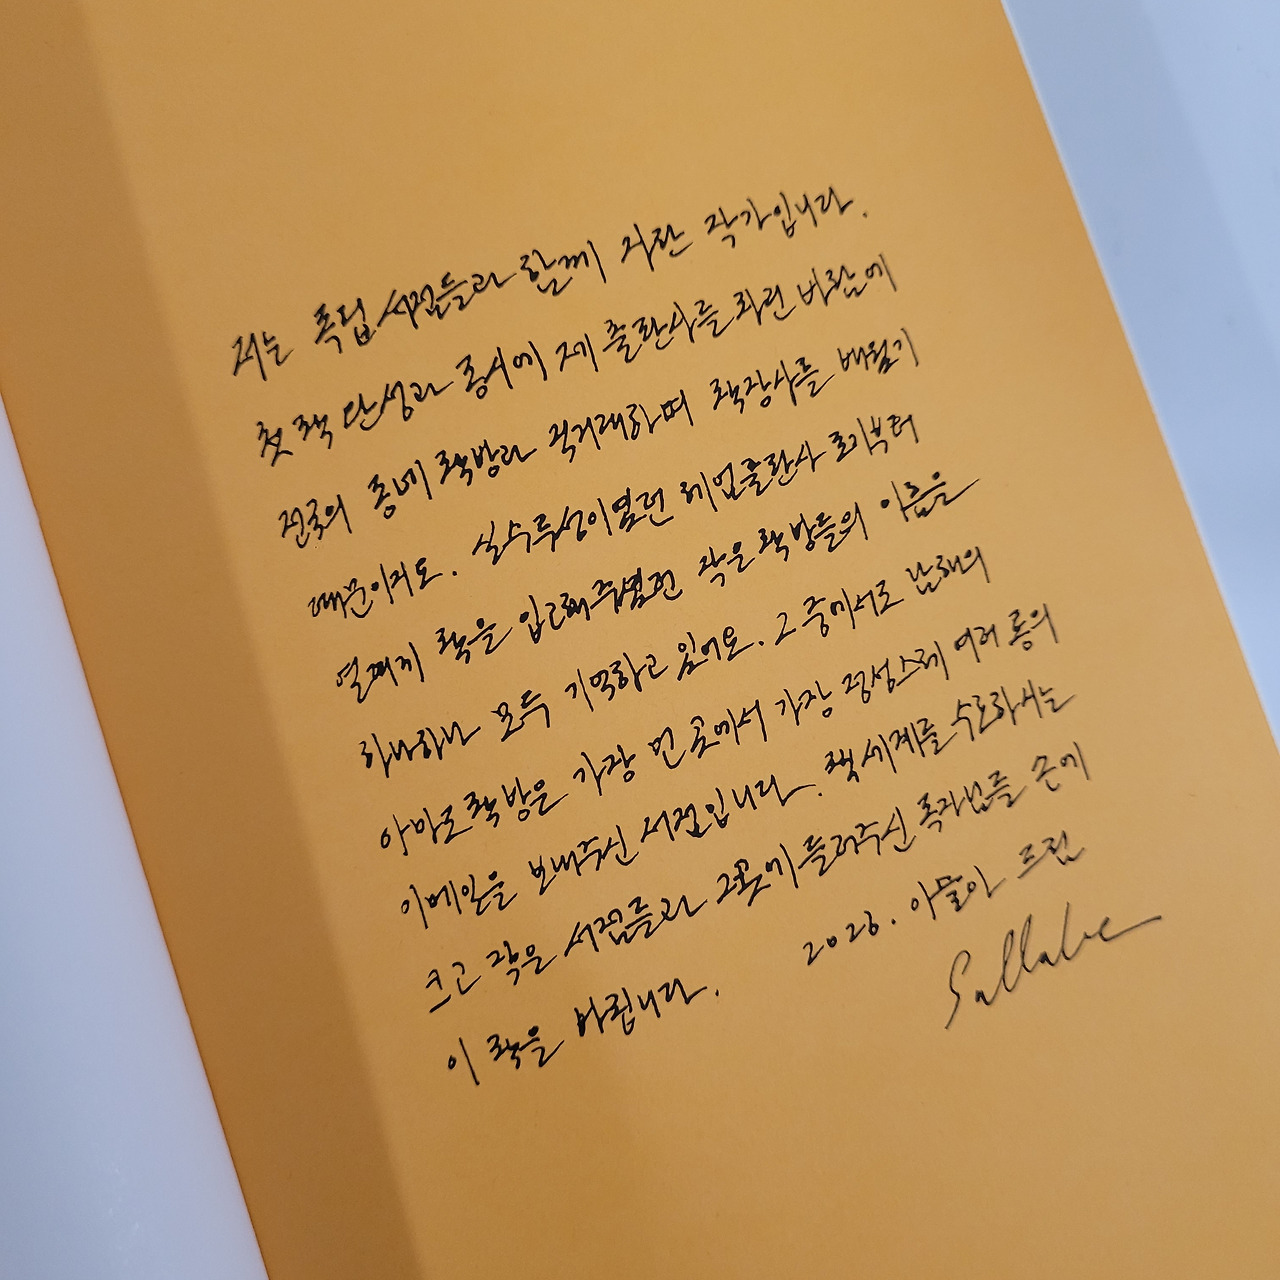 저는 독립 서점들과 함께 자란 작가입니다.
첫 책 탄생과 동시에 제 출판사를 차린 바람에
전국의 동네 책방과 직거래하며 책장사를 배웠기
때문이지요. 실수투성이였던 헤엄출판사 초기부터
열띠게 책을 입고해주셨던 작은 책방들의 이름을
하나하나 모두 기억하고 있어요. 그 중에서도 남해의
아마도책방은 가장 먼 곳에서 가장 정성스레 여러 통의
이메일을 보내주신 서점입니다. 책 세계를 수호하시는
크고 작은 서점들과 그곳에 들러주신 독자님들 손에
이 책을 바칩니다.
2026. 이슬아 드림
Sullalee